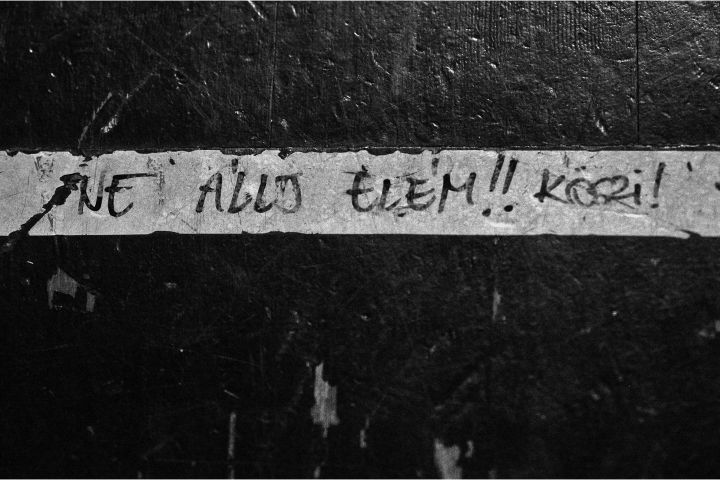 NE ÁLLJ ELÉM!! KÖSZi!